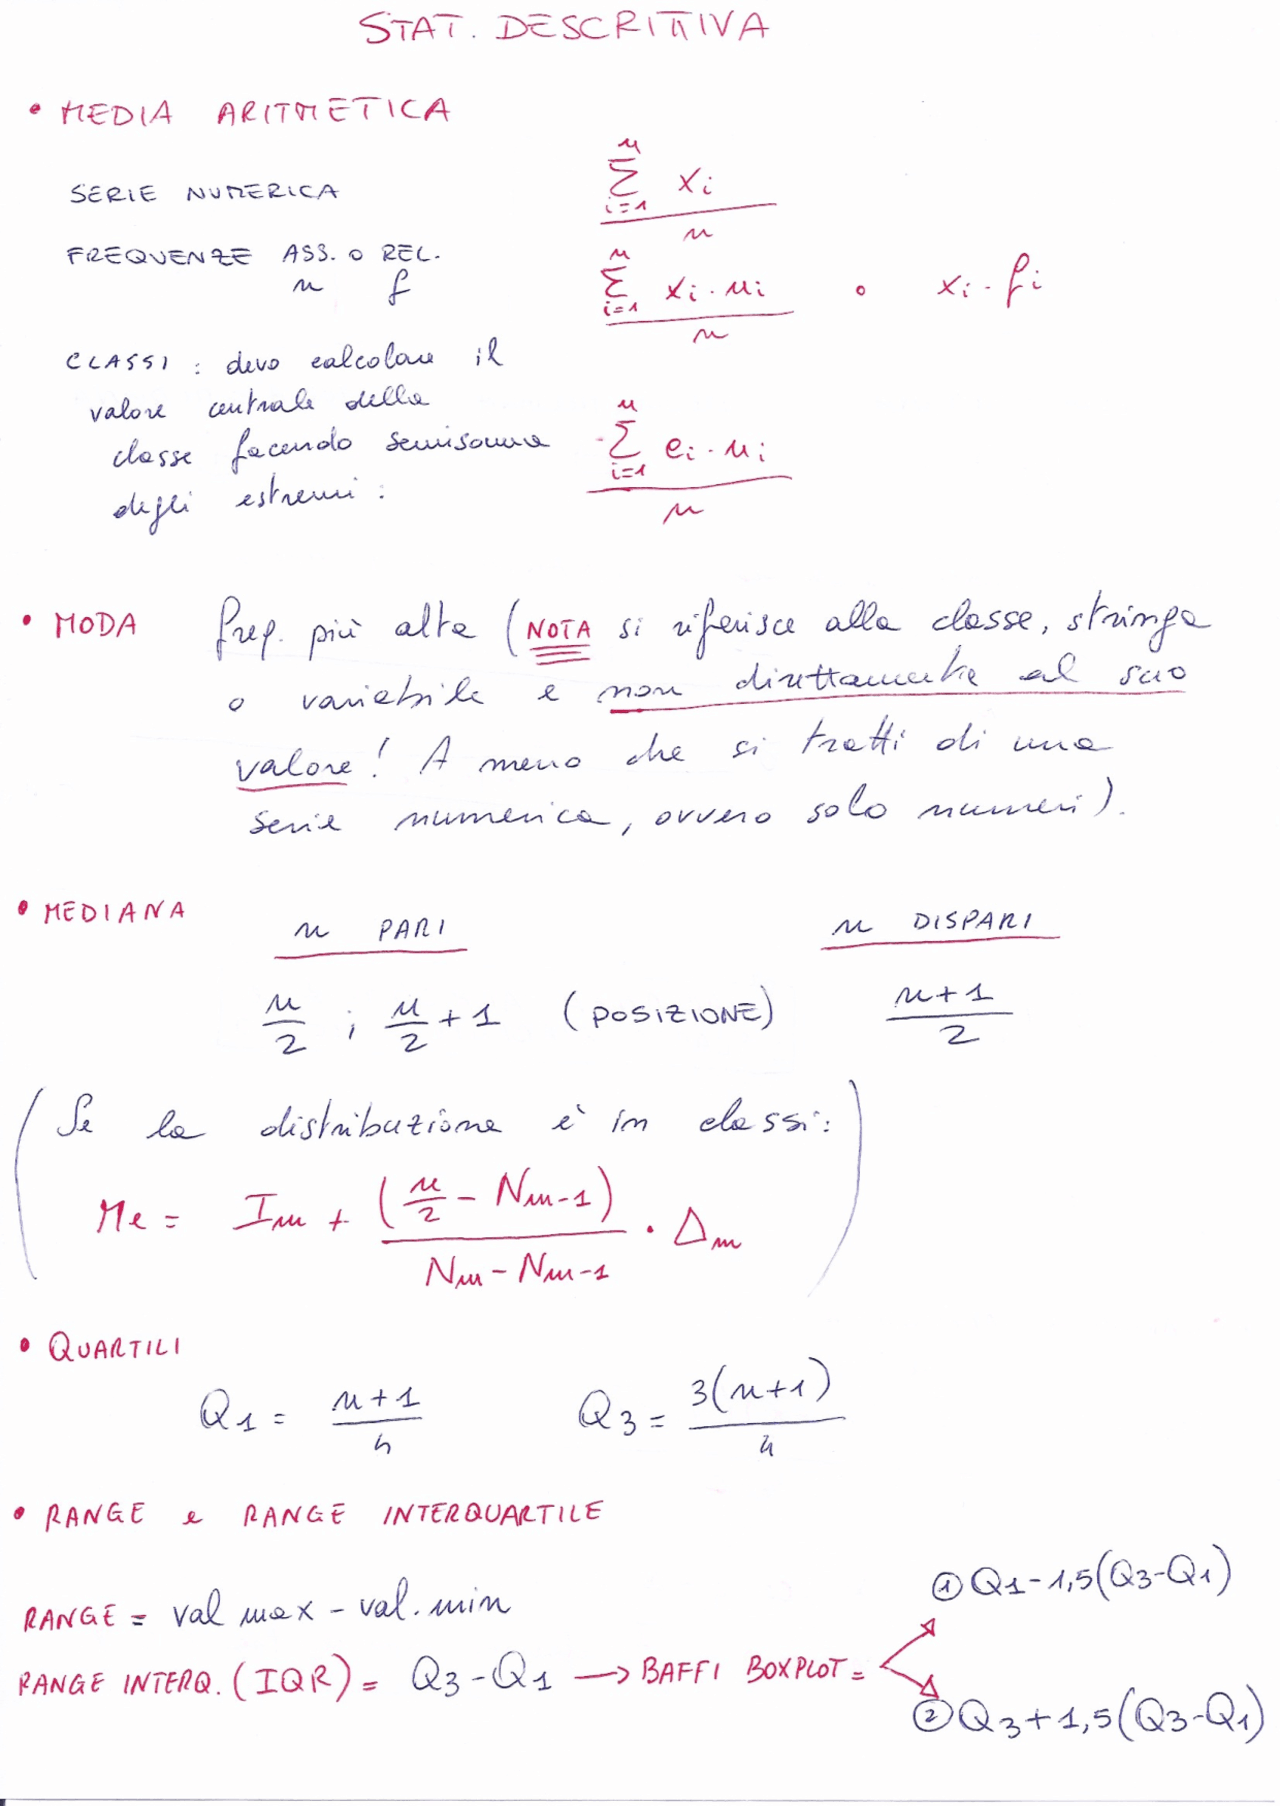 STAT. DESCRITTIVA
• MEDIA ARITMETICA
SERIE NUMERICA
\frac{\sum_{i=1}^{n} x_i}{n}
FREQUENZE ASS. O REL.
n f
\frac{\sum_{i=1}^{n} x_i \cdot n_i}{n} o x_i \cdot f_i
CLASSI : devo calcolare il
valore centrale della
classe facendo semisomma
degli estremi :
\frac{\sum_{i=1}^{n} c_i \cdot n_i}{n}
• MODA freq. più alta (NOTA si riferisce alla classe, stringa
o variabile e non direttamente al suo
valore! A meno che si tratti di una
serie numerica, ovvero solo numeri).
• MEDIANA
n PARI n DISPARI
\frac{n}{2} ; \frac{n}{2} + 1 (POSIZIONE) \frac{n+1}{2}
(Se la distribuzione è in classi:
Me = I_m + \frac{(\frac{n}{2} - N_{m-1})}{N_m - N_{m-1}} \cdot Δ_m)
• QUARTILI
Q1 = \frac{n+1}{4} Q3 = \frac{3(n+1)}{4}
• RANGE e RANGE INTERQUARTILE
RANGE = val max - val. min
① Q1 - 1,5(Q3-Q1)
RANGE INTERQ. (IQR) = Q3 - Q1 → BAFFI BOXPLOT =
② Q3 + 1,5(Q3-Q1)